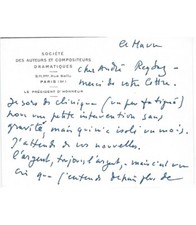 le Mans
SOCIÉTÉ
DES AUTEURS ET COMPOSITEURS
DRAMATIQUES
9-11 bis, Rue Ballu
PARIS (IXe)
LE PRÉSIDENT D'HONNEUR
cher André
merci de votre lettre.
Je sors de clinique (un peu fatigué)
pour une petite intervention sans
gravité, mais qui m'a isolé un mois.
J'attends de vos nouvelles.
l'argent, toujours l'argent, mais c'est un
cri que j'entends depuis plus de